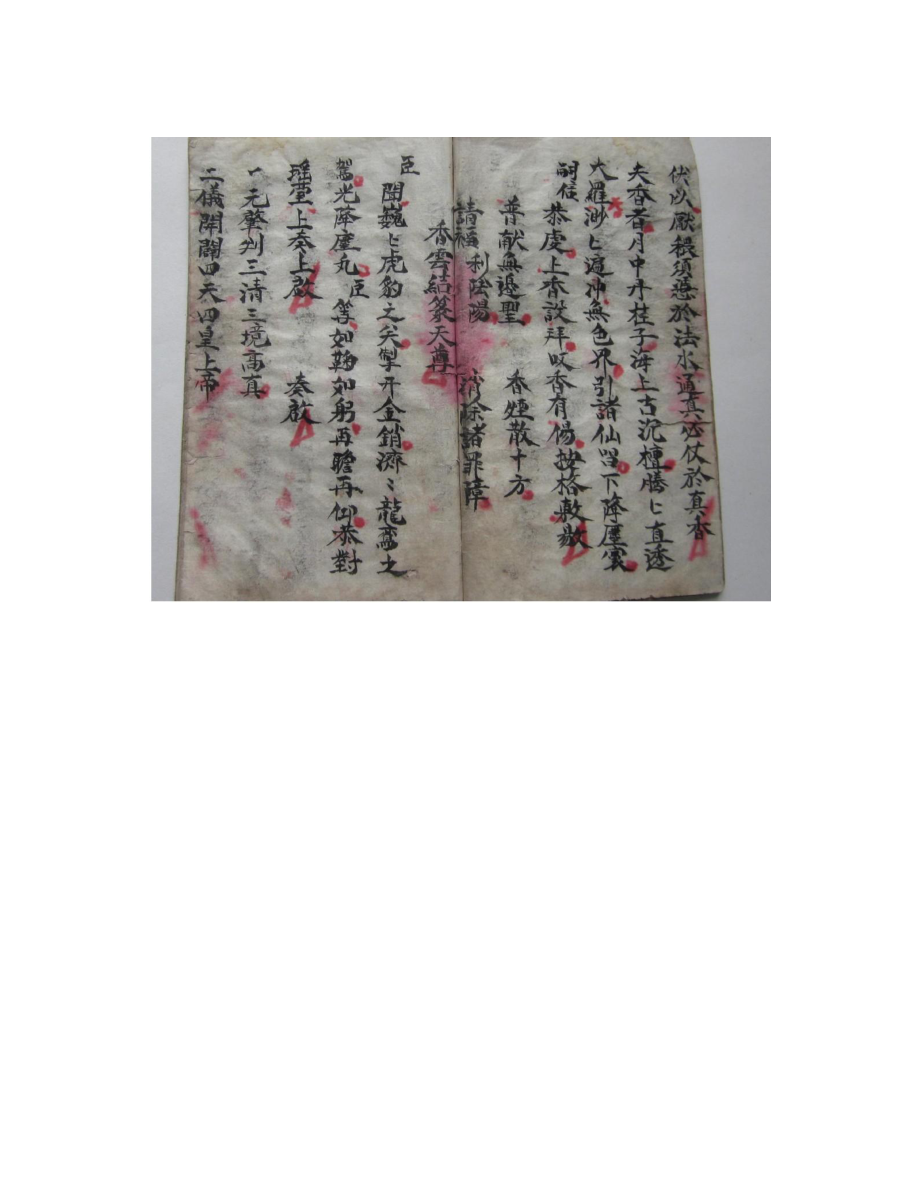 伏以厭穢須憑於法水通真必仗於真香
夫香者月中丹桂子海上古沉檀騰匕直透
大羅渺匕遍沖無色界引諸仙出下降塵寰
嗣信恭虔上香設拜叹香有偈按格敷歇
普献無邊聖 香煙散十方
請福利陰陽 消除諸罪障
香雲結篆天尊
臣
閶巍匕虎豹之关掣开金鎖濟〻龍鸞之
駕光降塵丸臣等如鞠如躬再瞻再仰恭對
瑶壇上奏上啟 奏啟
一元肇判三清三境高真
二儀開闢四天四皇上帝